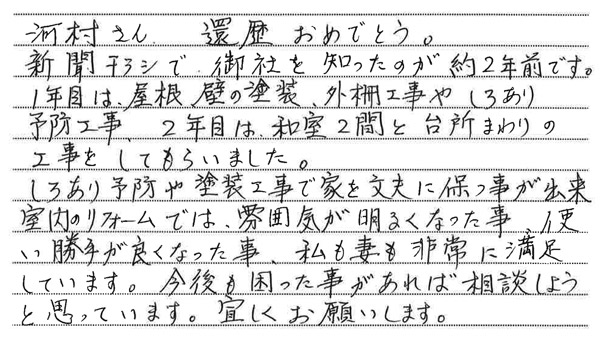 河村さん、還歴おめでとう。
新聞チラシで御社を知ったのが約2年前です。
1年目は、屋根、壁の塗装、外柵工事や しろあり
予防工事、2年目は、和室2間と台所まわりの
工事をしてもらいました。
しろあり予防や塗装工事で家を丈夫に保つ事が出来
室内のリフォームでは、雰囲気が明るくなった事、使
い勝手が良くなった事、私も妻も非常に満足
しています。今後も困った事があれば相談しよう
と思っています。宜しくお願いします。